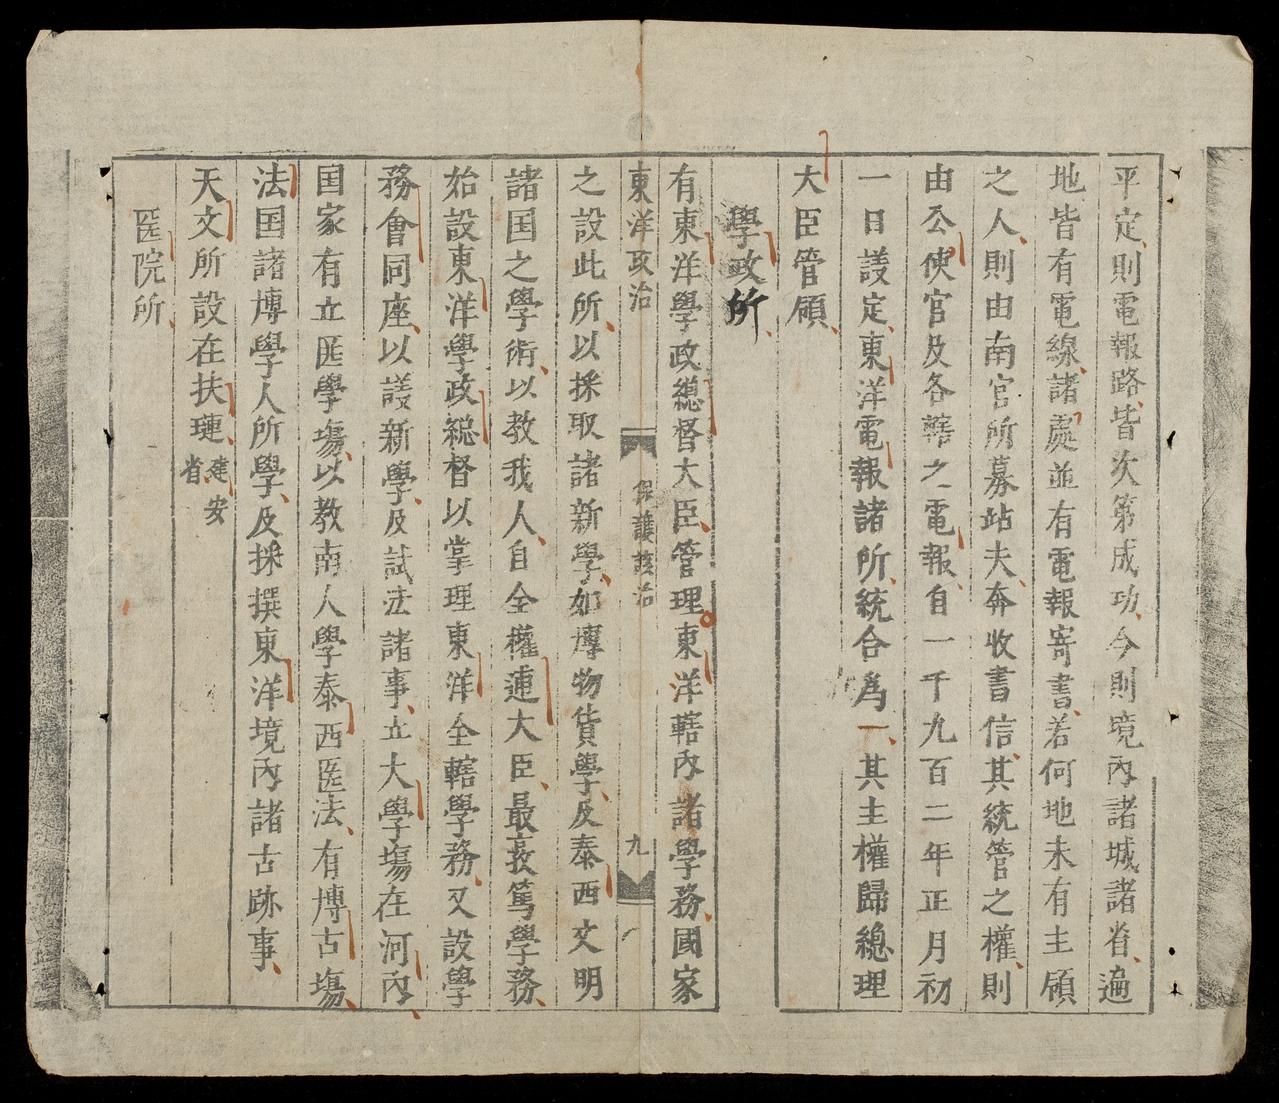 平定則電報路皆次第成功今則境內諸城諸省遍
地皆有電線諸處並有電報寄書若何地未有主領
之人則由南官所募站夫奔收書信其統管之權則
由公使官及各轄之電報自一千九百二年正月初
一日議定東洋電報諸所統合爲一其主權歸總理
大臣管領
學政所
有東洋學政總督大臣管理東洋轄內諸學務國家
東洋政治 保護該治 九
之設此所以採取諸新學如博物貨學及泰西文明
諸国之學術以教我人自全權連大臣最敦篤學務
始設東洋學政総督以掌理東洋全轄學務又設學
務會同座以議新學及試法諸事立大學塲在河內
国家有立医學塲以教南人學泰西医法有博古塲
法国諸博學人所學及採撰東洋境內諸古跡事
天文所設在扶璉建安省
医院所